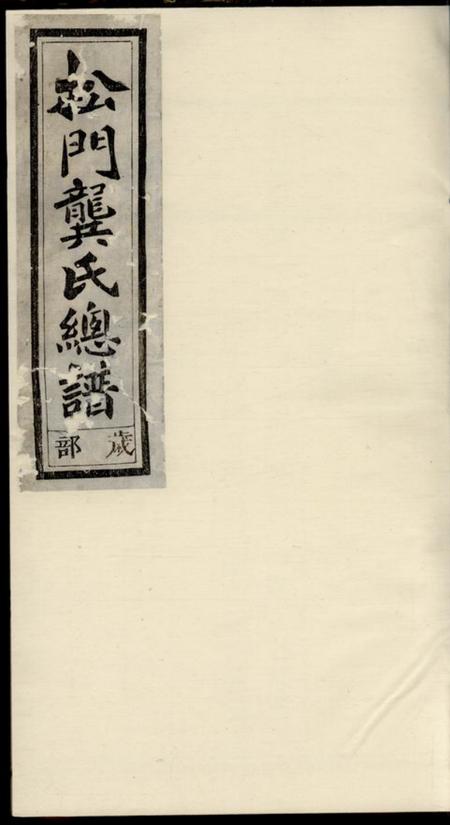 松門龔氏總譜
歲部